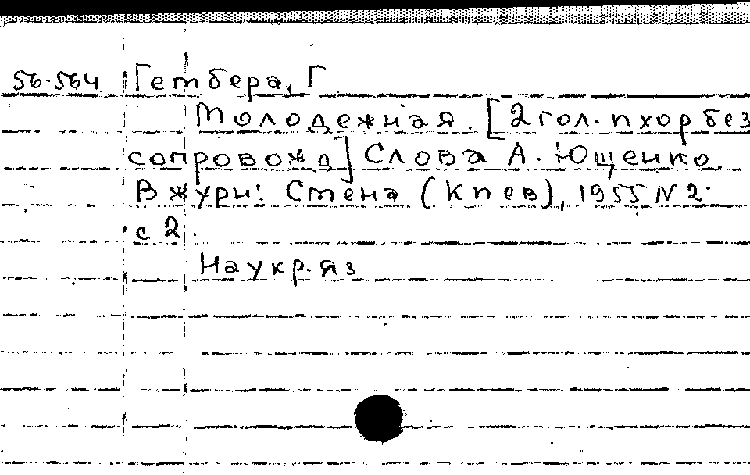 56-564 Гембера, Г
Молодежная. [2 гол. п хор без
сопровожд] Слова А. Ющенко.
В журн: Стена (Киев), 1955 N 2.
с 2.
На укр. яз